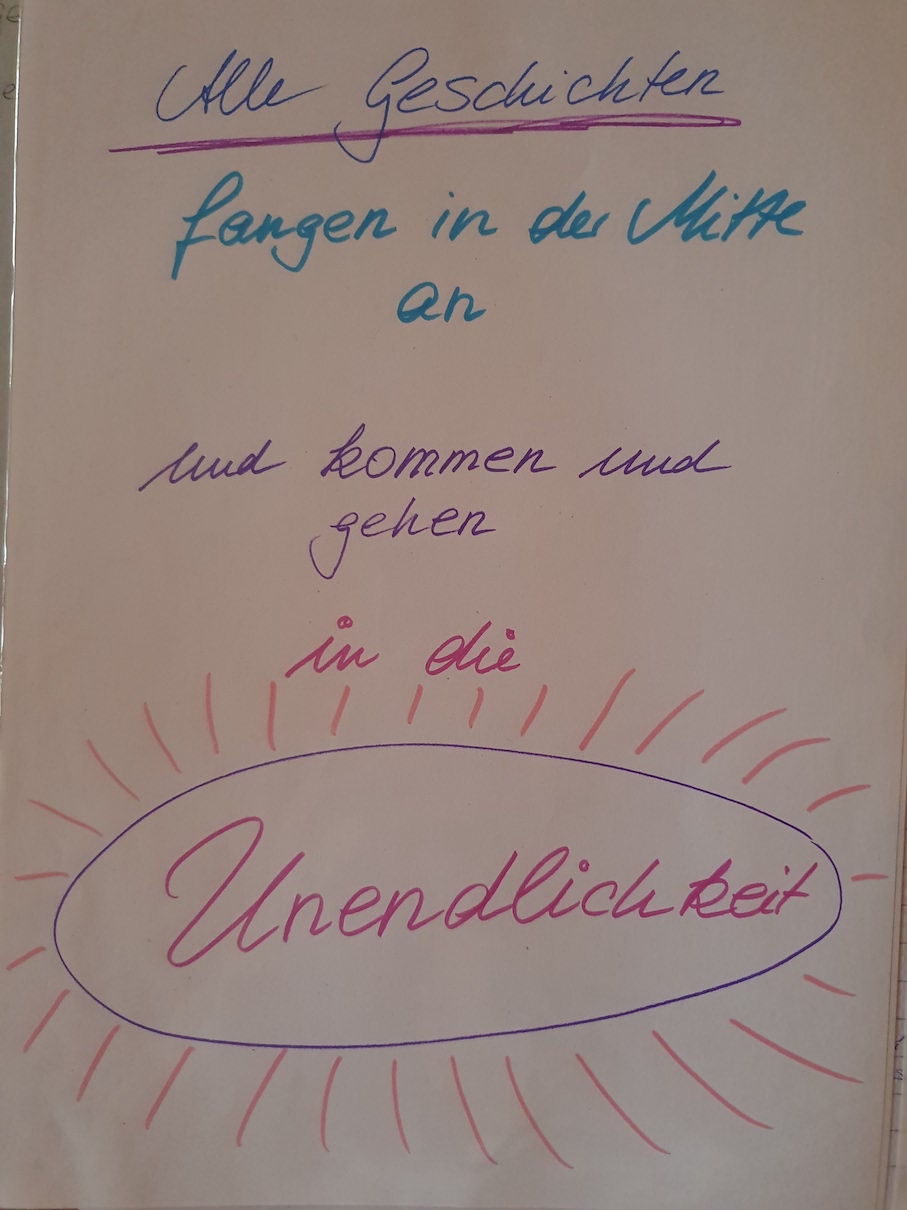 Alle Geschichten
fangen in der Mitte
an
und kommen und
gehen
in die
Unendlichkeit